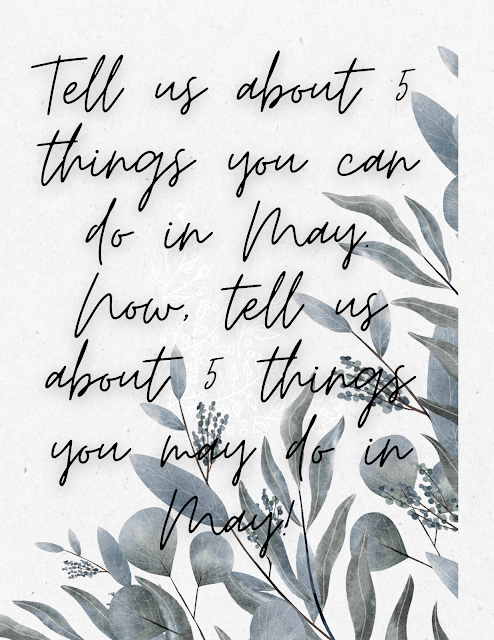 Tell us about 5
things you can
do in May.
Now, tell us
about 5 things
you may do in
May!